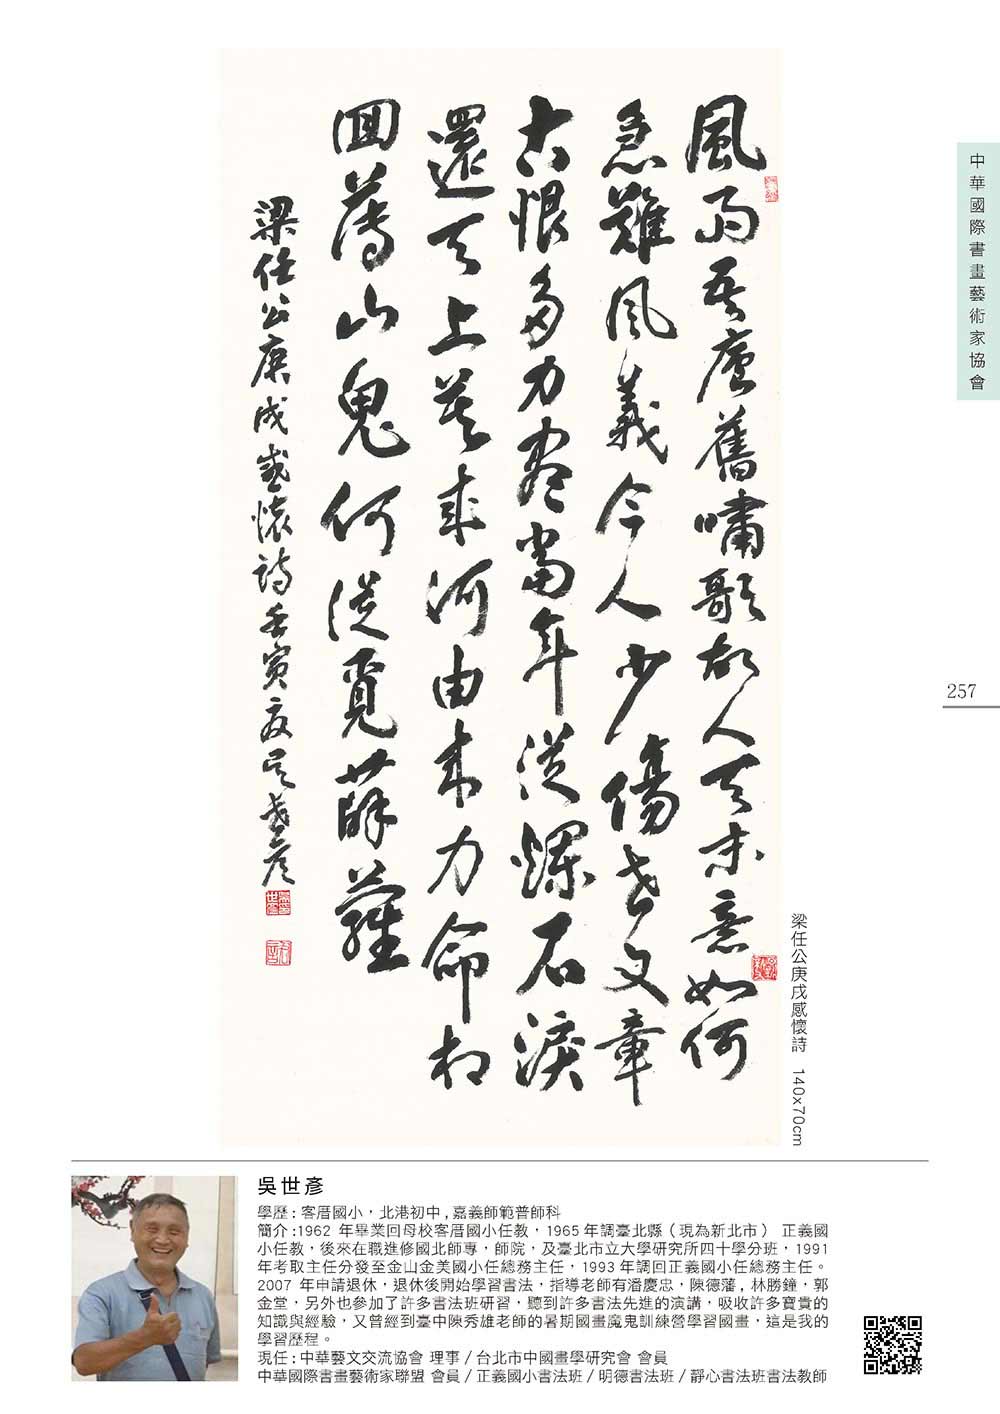 中華國際書畫藝術家協會
257
風雨吾廬舊嘯歌故人天末意如何
急難風義今人少傷世文章
古恨多力盡當年從爛石淚
還天上莫成河由來力命相
回薄山鬼何從覓薜蘿
梁任公庚戌感懷詩壬寅夏吳世彥
梁任公庚戌感懷詩 140x70cm
吳世彥
學歷:客厝國小,北港初中,嘉義師範普師科
簡介:1962 年畢業回母校客厝國小任教,1965年調臺北縣(現為新北市) 正義國
小任教,後來在職進修國北師專,師院,及臺北市立大學研究所四十學分班,1991
年考取主任分發至金山金美國小任總務主任,1993年調回正義國小任總務主任。
2007 年申請退休,退休後開始學習書法,指導老師有潘慶忠,陳德藩,林勝鐘,郭
金堂,另外也參加了許多書法班研習,聽到許多書法先進的演講,吸收許多寶貴的
知識與經驗,又曾經到臺中陳秀雄老師的暑期國畫魔鬼訓練營學習國畫,這是我的
學習歷程。
現任:中華藝文交流協會 理事/台北市中國畫學研究會 會員
中華國際書畫藝術家聯盟 會員/正義國小書法班/明德書法班/靜心書法班書法教師